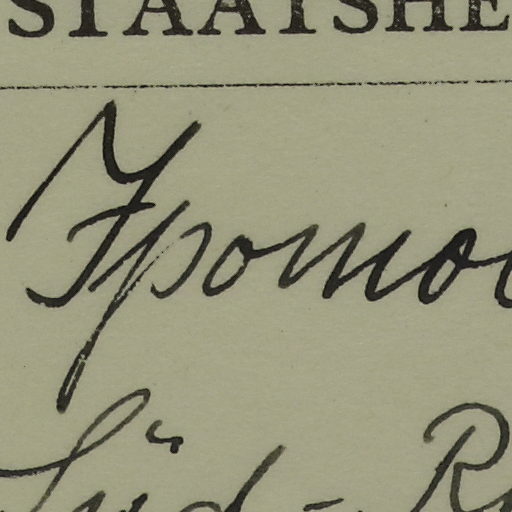 STAATSHE
Ipomoe
Süd-R